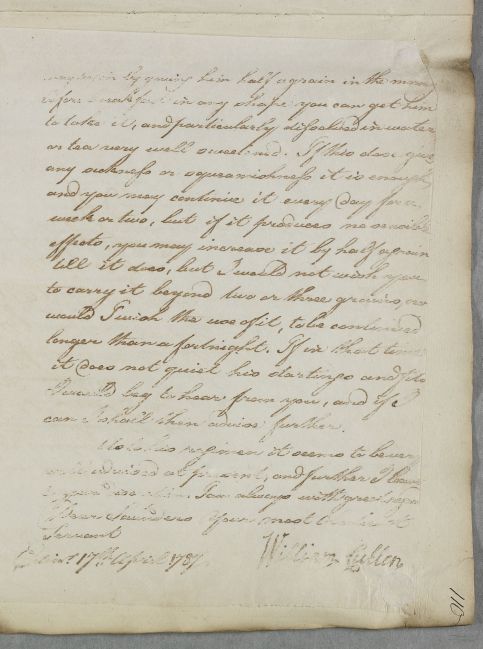 by giving him half a grain in the morn
before breakfast in any shape you can get him
to take it, and particularly dissolved in water
or tea very well sweetened. If this dose give
any sickness or squeamishness it is enough
and you may continue it every day for a
week or two, but if it produces no sensible
effects, you may increase it by half a grain
till it does, but I would not wish you
to carry it beyond two or three grains, nor
would I wish the use of it, to be continued
longer than a fortnight. If in that time
it does not quiet his startings and fits
I would beg to hear from you, and if I
can I shall then advise further.
As to his regimen it seems to be very
well advised at present, and further I leave
to your discretion. I am always with great regard
Dear Saunders Your most Obedient
Servant
Edinr. 17th April 1787 William Cullen
110